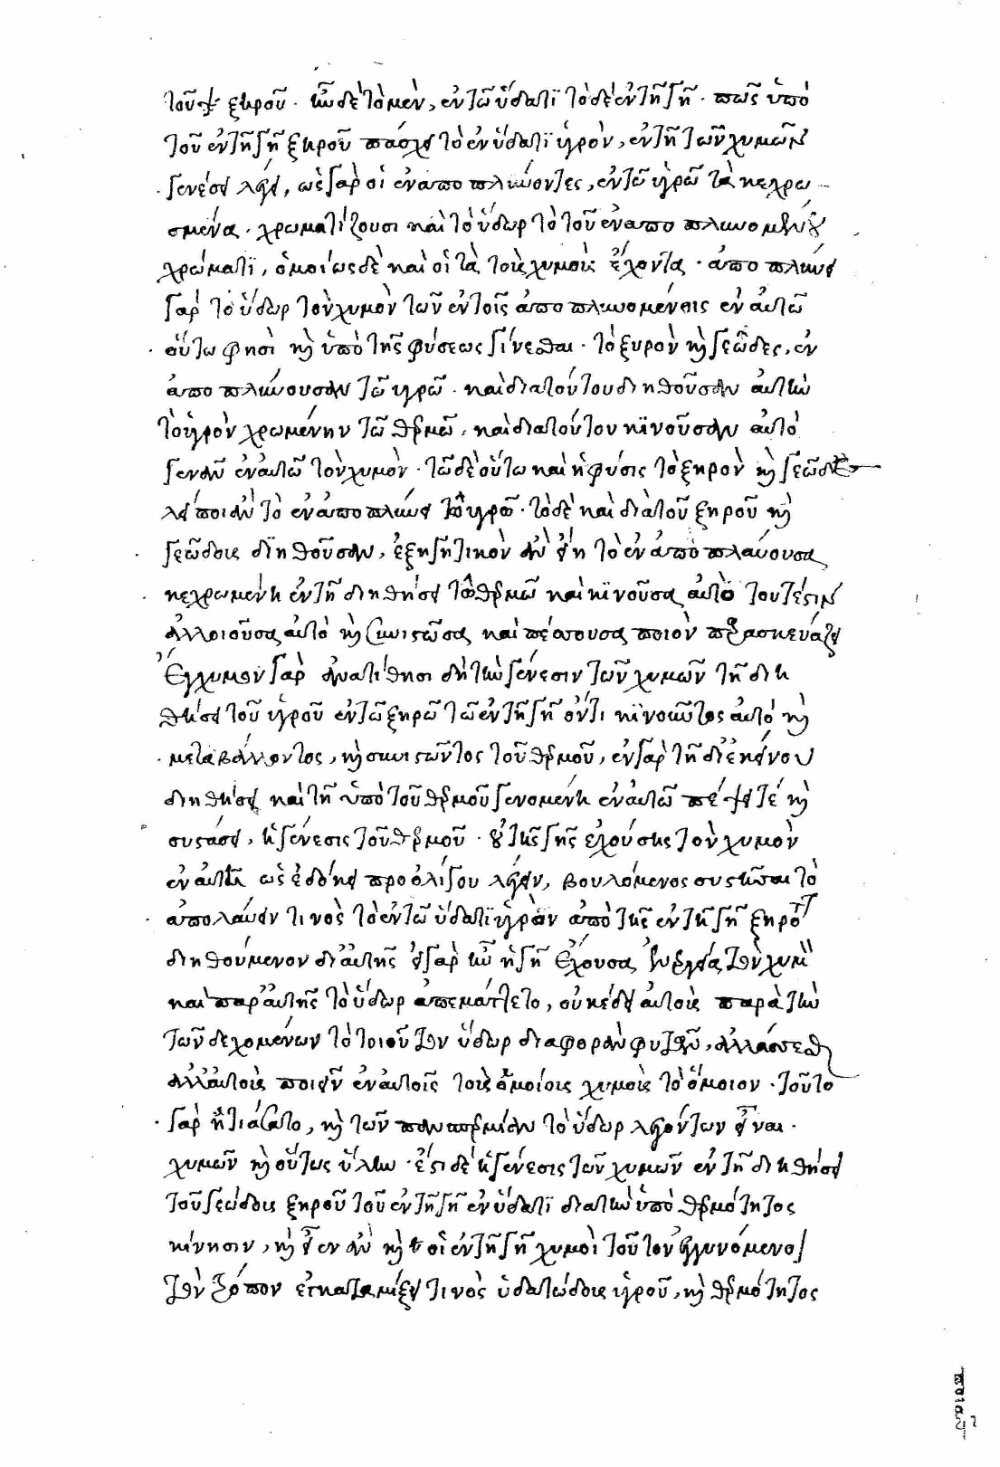 τοῦ ξηροῦ · ὧδε τὸ μὲν, ἐν τῶ ὕδατι τὸ δὲ ἐν τῆ γῆ · πῶς ὑπὸ
τοῦ ἐν τῆ γῆ ξηροῦ πάσχει τὸ ἐν ὕδατι ὑγρὸν, ἐν τῆ τῶν χυμῶν
γενέσει λέγει, ὡς γὰρ οἱ ἐναποπλύνοντες, ἐν τῶ ὑγρῶ τὰ κεχρω
σμένα · χρωματίζουσι καὶ τὸ ὕδωρ τὸ τοῦ ἐναποπλυνομένου
χρώματι, ὁμοίως δὲ καὶ οἱ τὰ τοὺς χυμοὺς ἔχοντα · ἀποπλύνει
γὰρ τὸ ὕδωρ τὸν χυμὸν τῶν ἐν τοῖς ἀποπλυνομένοις ἐν αὐτῶ
οὕτω φησὶ καὶ ὑπὸ τῆς φύσεως γίνεσθαι · τὸ ξυρὸν καὶ γεῶδες, ἐν
ἀποπλύνουσαν τῶ ὑγρῶ · καὶ διὰ τούτου διηθοῦσαν αὐτὴν
τὸ ὑγρὸν χρωμένην τῶ θερμῶ, καὶ διὰ τούτου κινοῦσαν αὐτὸ
γεννᾶν ἐν αὐτῶ τὸν χυμὸν · τῶδε οὕτω καὶ ἡ φύσις τὸ ξηρὸν καὶ γεῶδες
λείποι ἂν τὸ ἐναποπλύνει τῶ ὑγρῶ · τὸ δὲ καὶ διὰ τοῦ ξηροῦ καὶ
γεώδους διηθοῦσαν, ἐξηγητικὸν ἂν εἴη τὸ ἐναποπλύνουσα
κεχρωμένη ἐν τῆ διηθήσει τῶ θερμῶ καὶ κινοῦσα αὐτὸ τουτέστιν
ἀλλοιοῦσα αὐτὸ καὶ συνιστῶσα καὶ πέπτουσα ποιὸν παρασκευάζει
Ἔγχυμον γὰρ ἀνατίθησι δὴ τὴν γένεσιν τῶν χυμῶν τῆ διη
θήσει τοῦ ὑγροῦ ἐν τῶ ξηρῶ τῶ ἐν τῆ γῆ ὄντι κινοῦντος αὐτὸ καὶ
μεταβάλλοντος, καὶ συνιστῶντος τοῦ θερμοῦ, ἐν γὰρ τῆ δι' ἐκείνου
διηθήσει καὶ τῆ ὑπὸ τοῦ θερμοῦ γενομένη ἐν αὐτῶ πέψει τε καὶ
συστάσει, ἡ γένεσις τοῦ θερμοῦ · οὐ τῆς γῆς ἐχούσης τὸν χυμὸν
ἐν αὐτῆ ὡς ἐδόκει πρὸ ὀλίγου λέγειν, βουλόμενος συστῆσαι τὸ
ἀπολαύειν τινὸς τὸ ἐν τῶ ὕδατι ὑγρὸν ἀπὸ τῆς ἐν τῆ γῆ ξηρότητος
διηθούμενον δι' αὐτῆς εἰ γὰρ ἦν ἡ γῆ ἔχουσα ἐνεργεία τὸν χυμὸν
καὶ παρ' αὐτῆς τὸ ὕδωρ ἀπεμάττετο, οὐκ ἔδει αὐτοῖς παρὰ τὴν
τῶν δεχομένων τὸ τοιοῦτον ὕδωρ διαφορὰν φυτῶν, ἀλλάσσεσθαι
ἀλλ' αὐτοὺς ποιεῖν ἐν αὐτοῖς τοὺς ὁμοίους χυμοὺς τὸ ὅμοιον · τοῦτο
γὰρ ἠτιάσατο, καὶ τῶν πανσπερμίαν τὸ ὕδωρ λεγόντων εἶναι ·
χυμῶν καὶ οὕτως ὕλην · ἔστι δὲ ἡ γένεσις τῶν χυμῶν ἐν τῆ διηθήσει
τοῦ γεώδους ξηροῦ τοῦ ἐν τῆ γῆ ἐν ὕδατι διὰ τὴν ὑπὸ θερμότητος
κίνησιν, καὶ εἶεν ἂν καὶ οἱ ἐν τῆ γῆ χυμοὶ τοῦτον ἐγγινόμενοι
τὸν τρόπον ἐπικαταμίξει τινὸς ὑδατώδους ὑγροῦ, καὶ θερμότητος
ποια